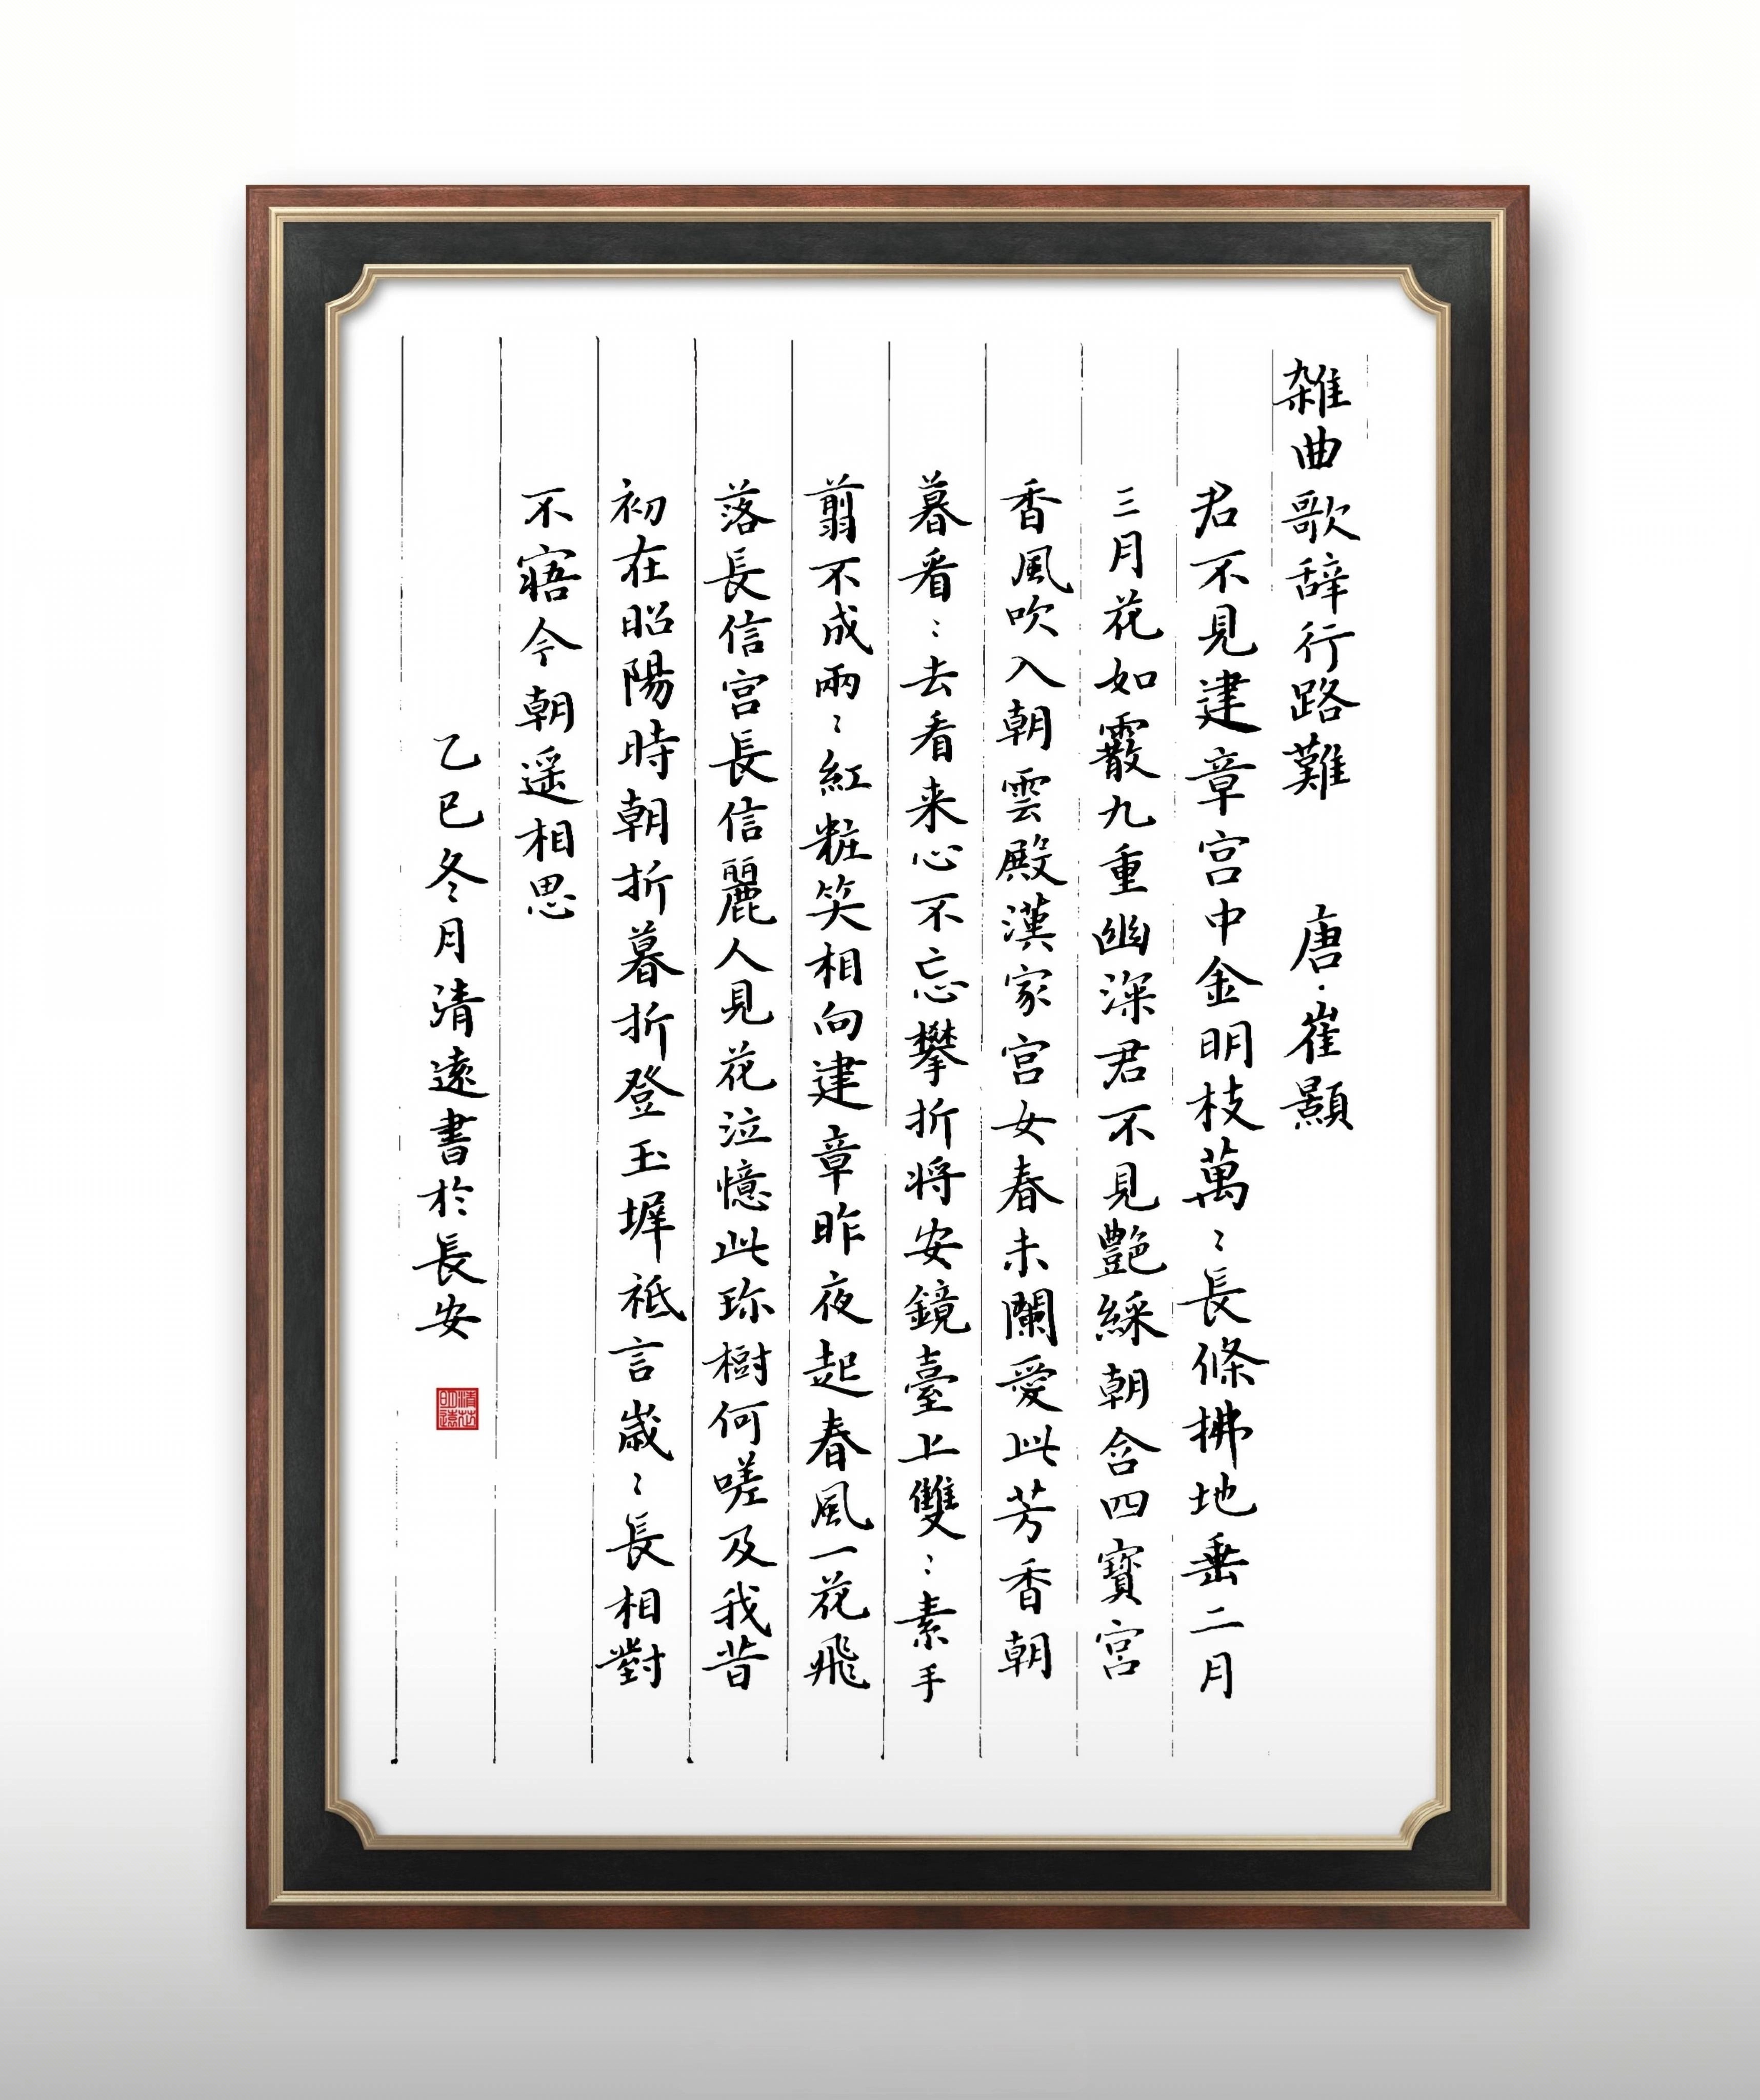 雑曲歌辞行路難 唐·崔顥
君不見建章宮中金明枝萬〻長條拂地垂二月
三月花如霰九重幽深君不見艷綵朝含四寶宮
香風吹入朝雲殿漢家宮女春未闌愛此芳香朝
暮看〻去看来心不忘攀折将安鏡臺上雙〻素手
翦不成兩〻紅粧笑相向建章昨夜起春風一花飛
落長信宮長信麗人見花泣憶此珎樹何嗟及我昔
初在昭陽時朝折暮折登玉墀祗言歳〻長相對
不寤今朝遥相思
乙巳冬月清遠書於長安